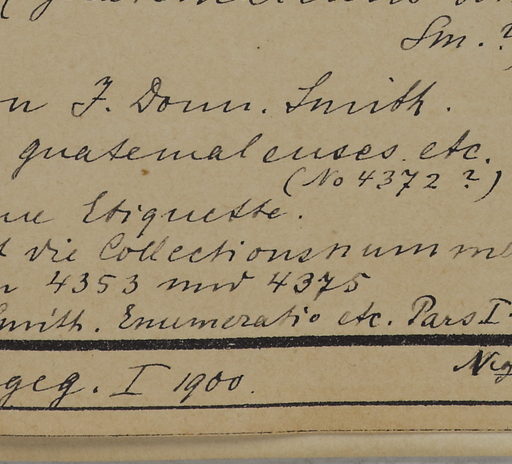 Sm. ?
n J. Donn. Smith.
guatemalenses etc.
(No 4372 ?)
ne Etiquette.
t die Collectionsnumme
n 4353 und 4375
Smith. Enumeratio etc. Pars I
geg. I 1900.